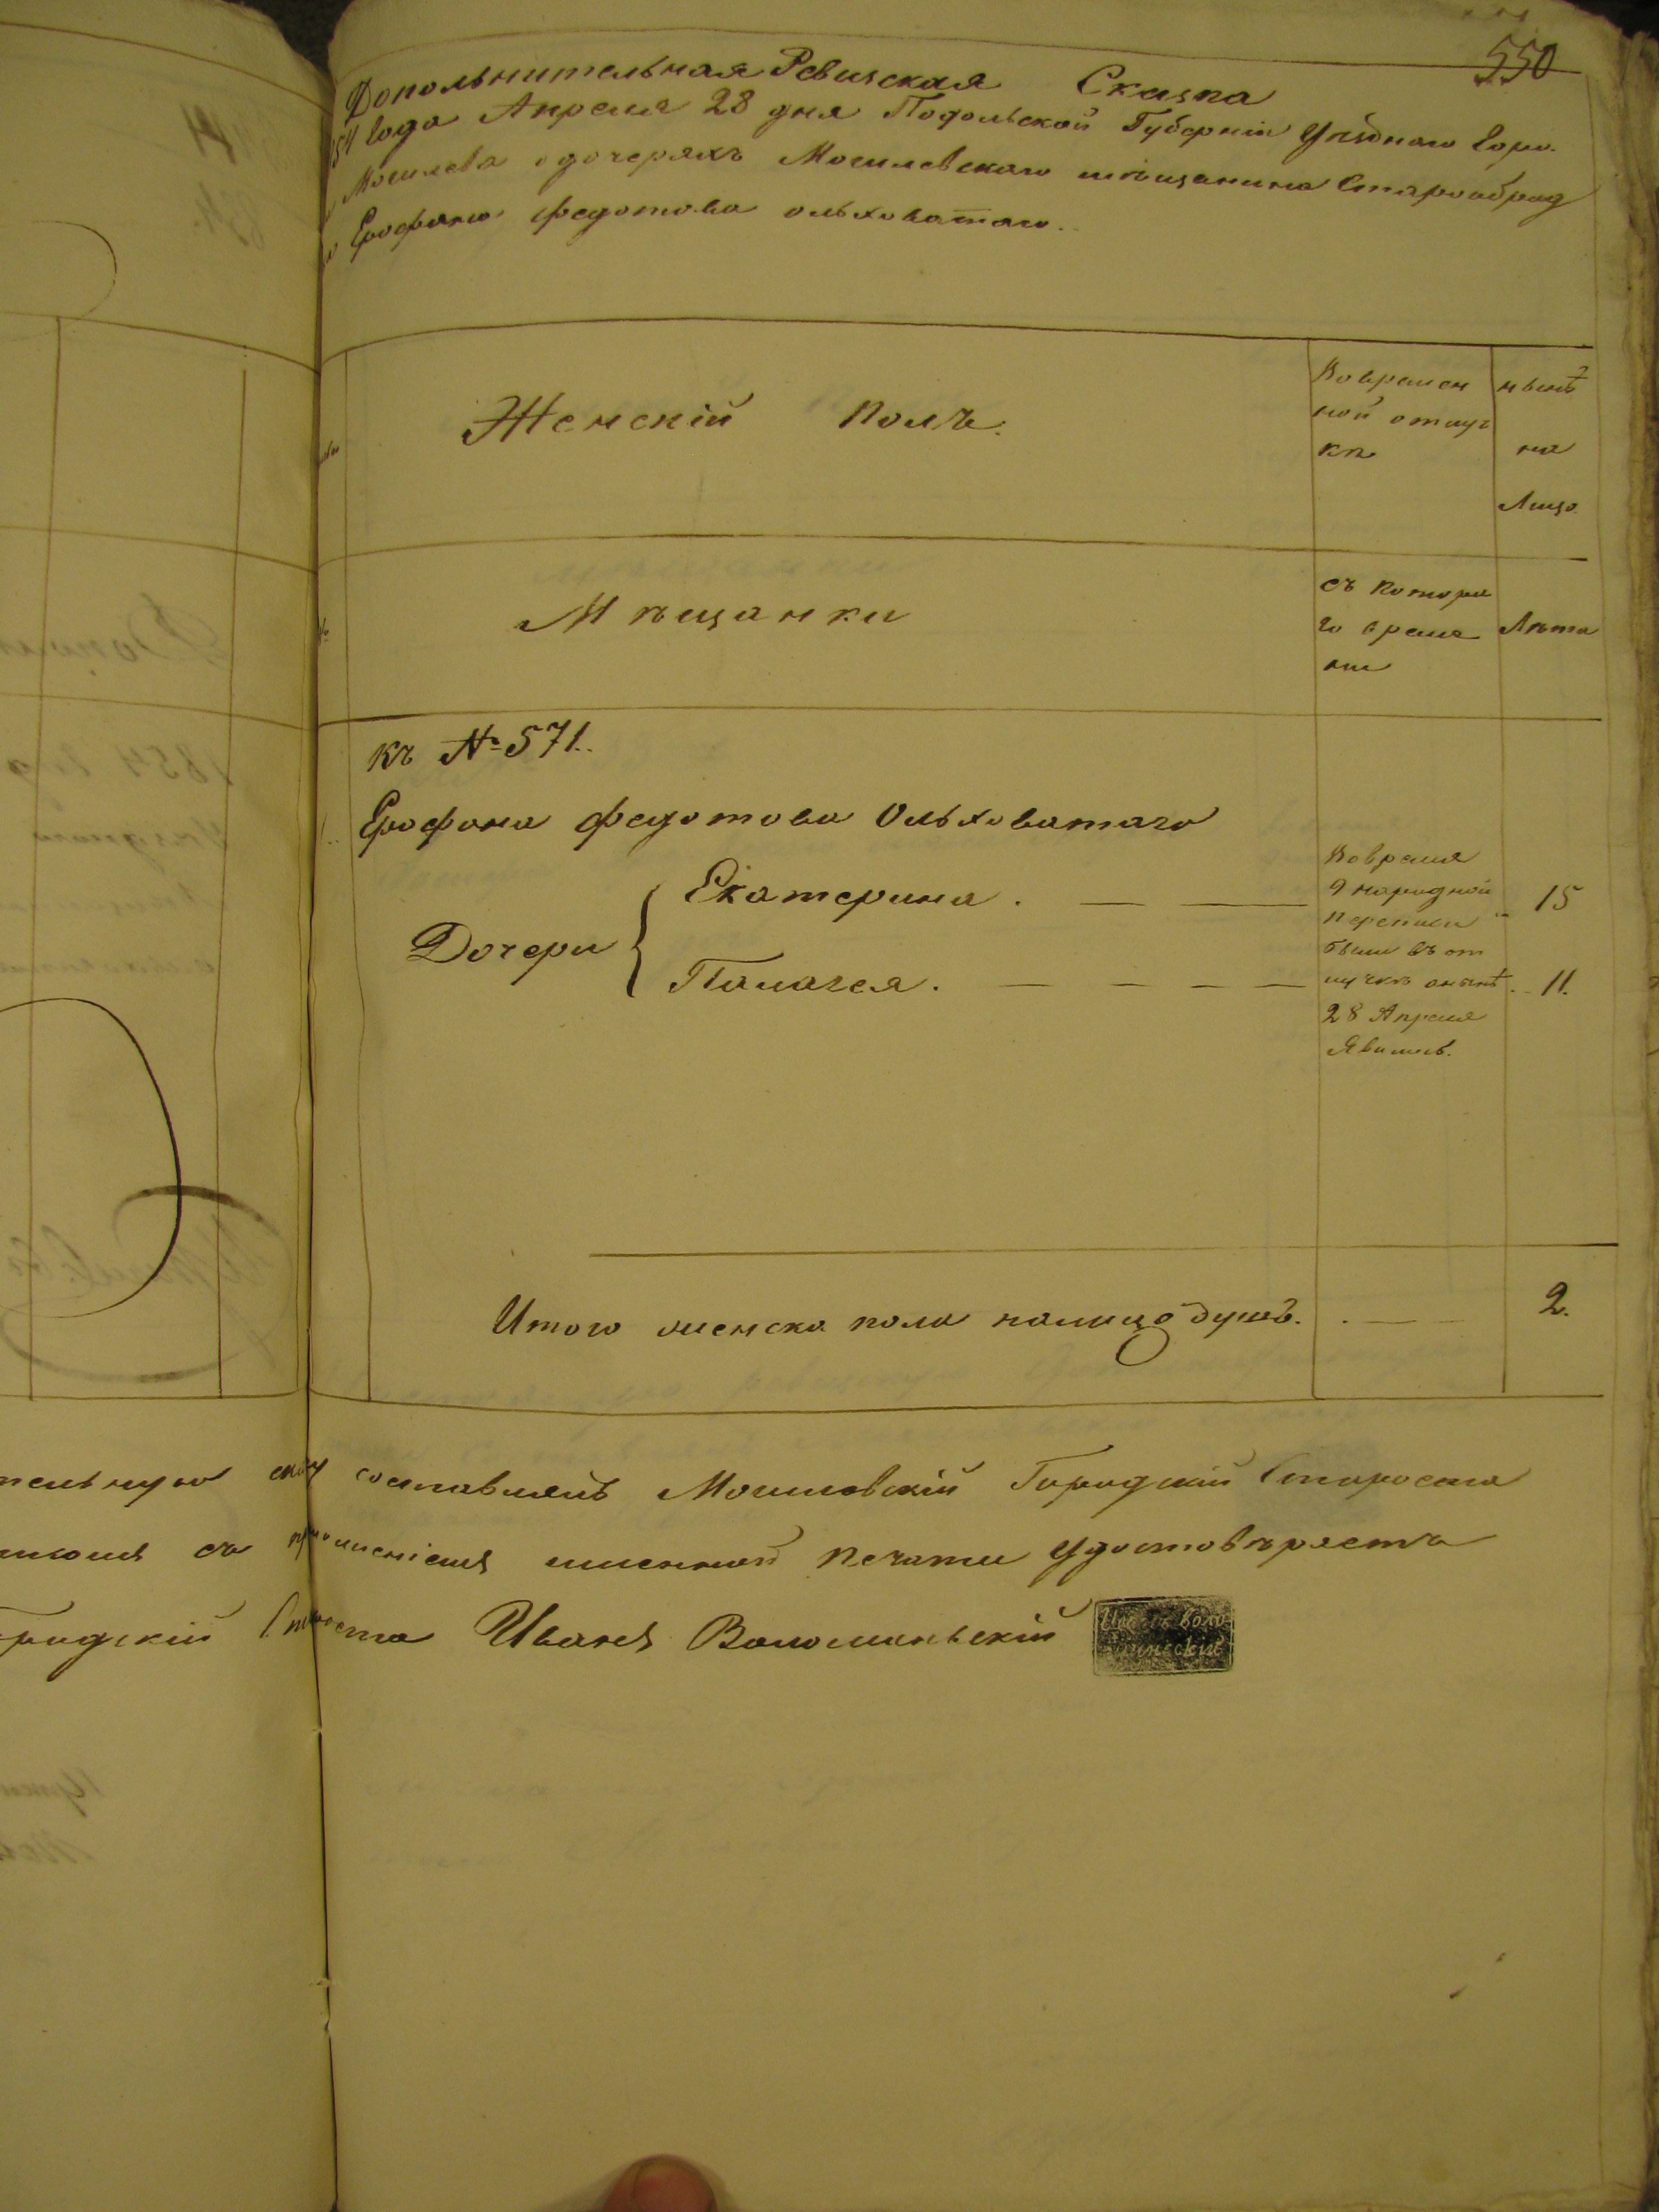 550
Дополнительная Ревизская Сказка
54 года Апреля 28 дня Подольской Губерніи Уѣзднаго Горо.
Могилева о дочеряхъ Могилевскаго мѣщанина Старообряд
Ерофана Федотова Ольховатаго.
Женскій Полъ.
Вовремен
ной отлуч
кѣ
нынѣ
на
Лицо.
Мѣщанки
съ котора
го време
ни
Лѣта
къ № 571.
1. Ерофана Федотова Ольховатаго
Дочери
Екатерина. — —
Палагея. — — — —
Вовремя
9 народной
переписи
были въ от
лучкѣ а нынѣ
28 Апреля
Явились.
15
11.
Итого женска пола налицо душъ. . — —
2.
тельную составлялъ Могилевскій Городскій Староста
съ приложеніемъ именной печати удостовѣряетъ
Староста Иванъ Воломинскій
1854 года